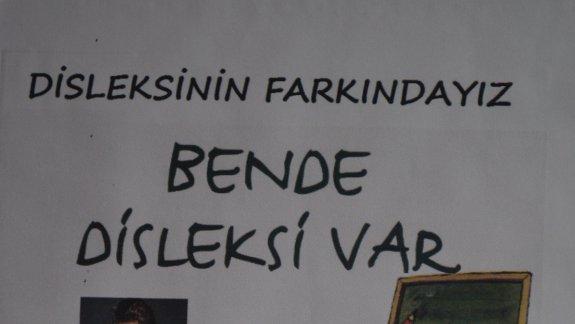 DİSLEKSİNİN FARKINDAYIZ
BENDE
DİSLEKSİ VAR